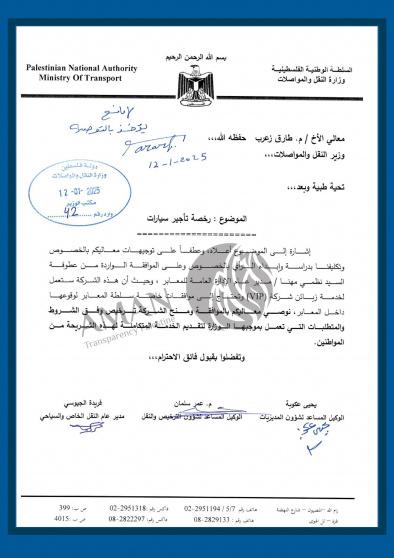 بسم الله الرحمن الرحيم
Palestinian National Authority
Ministry Of Transport
السلطة الوطنية الفلسطينية
وزارة النقل والمواصلات
لا مانع
يؤخذ بالتوصية
12-1-2025
معالي الأخ / م. طارق زعرب حفظه الله،،،
وزير النقل والمواصلات،،،
دولة فلسطين
وزارة النقل والمواصلات
12 -01- 2025
مكتب الوزير
وارد رقم: 42
تحية طيبة وبعد،،،
الموضوع : رخصة تأجير سيارات
إشارة إلى الموضوع أعلاه، وعطفاً على توجيهات معاليكم بالخصوص
وتكليفنا بدراسة وإبداء الرأي بالخصوص وعلى الموافقة الواردة من عطوفة
السيد نظمي مهنا / مدير عام الإدارة العامة للمعابر، وحيث أن هذه الشركة ستعمل
لخدمة زبائن شركة (VIP) وتحتاج إلى موافقات خاصة من سلطة المعابر لوقوعها
داخل المعابر، نوصي معاليكم بالموافقة ومنح الشركة ترخيص وفق الشروط
والمتطلبات التي تعمل بموجبها الوزارة لتقديم الخدمة المتكاملة لهذه الشريحة من
المواطنين.
AMAN
Transparency Palestine
وتفضلوا بقبول فائق الاحترام،،،
يحيى عكوبة
الوكيل المساعد لشؤون المديريات
م. عمر سلمان
الوكيل المساعد لشؤون الترخيص والنقل
فريدة الجيوسي
مدير عام النقل الخاص والسياحي
رام الله – المصيون – شارع النهضة هاتف رقم: 5/7 / 02-2951194 فاكس رقم: 02-2951318 ص ب: 399
غزة – تل الهوى هاتف رقم: 08-2829133 فاكس رقم: 08-2822297 ص ب: 4015